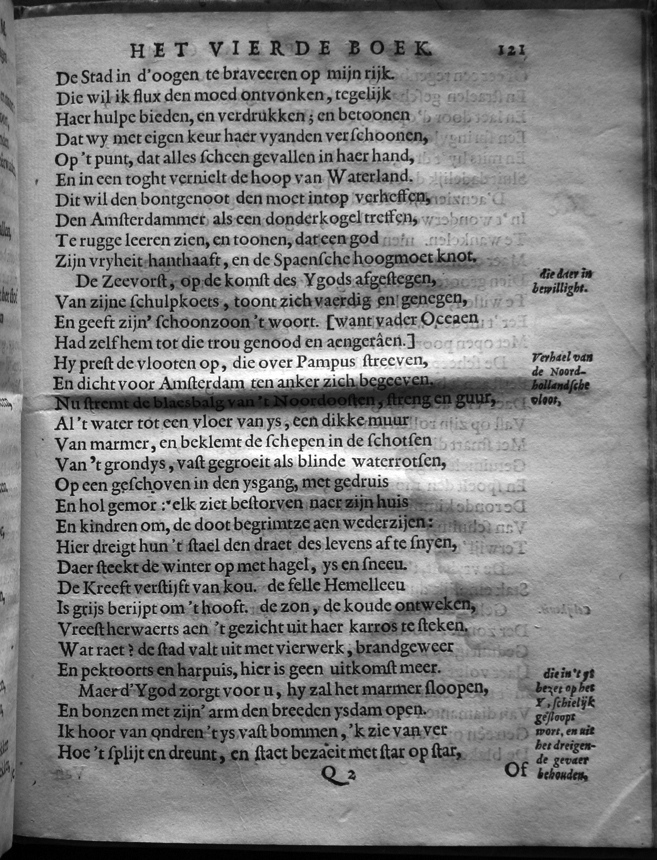 HET VIERDE BOEK. 121
De Stad in d'oogen te braveeren op mijn rijk.
Die wil ik flux den moed ontvonken, tegelijk
Haer hulpe bieden, en verdrukken; en betoonen
Dat wy met eigen keur haer vyanden verſchoonen,
Op 't punt, dat alles ſcheen gevallen in haer hand,
En in een toght vernielt de hoop van Waterland.
Dit wil den bontgenoot den moet intop verheffen,
Den Amſterdammer als een donderkogel treffen,
Te rugge leeren zien, en toonen, dat een god
Zijn vryheit hanthaaft, en de Spaenſche hoogmoet knot.
De Zeevorſt, op de komſt des Ygods afgeſtegen,
die daer in
bewillight.
Van zijne ſchulpkoets, toont zich vaerdig en genegen,
En geeft zijn' ſchoonzoon 't woort. [want vader Oceaen
Had zelf hem tot die trou genood en aengerâen.]
Hy preſt de vlooten op, die over Pampus ſtreeven,
Verhael van
de Noord-
hollandſche
vloot,
En dicht voor Amſterdam ten anker zich begeeven.
Nu ſtremt de blaesbalg van 't Noordooſten, ſtreng en guur,
Al 't water tot een vloer van ys, een dikke muur
Van marmer, en beklemt de ſchepen in de ſchotſen
Van 't grondys, vaſt gegroeit als blinde waterrotſen,
Op een geſchoven in den ysgang, met gedruis
En hol gemor: elk ziet beſtorven naer zijn huis
En kindren om, de doot begrimtze aen wederzijen:
Hier dreigt hun 't ſtael den draet des levens af te ſnyen,
Daer ſteekt de winter op met hagel, ys en ſneeu.
De Kreeft verſtijft van kou. de felle Hemelleeu
Is grijs berijpt om 't hooft. de zon, de koude ontweken,
Vreeſt herwaerts aen 't gezicht uit haer karros te ſteken.
Wat raet? de ſtad valt uit met vierwerk, brandgeweer
En pektoorts en harpuis, hier is geen uitkomſt meer.
Maer d'Ygod zorgt voor u, hy zal het marmer ſloopen,
die in 't ys
bezet op het
Y, ſchielijk
geſloopt
wort, en uit
het dreigen-
de gevaer
behouden,
En bonzen met zijn' arm den breeden ysdam open.
Ik hoor van ondren 't ys vaſt bommen, 'k zie van ver
Hoe 't ſplijt en dreunt, en ſtaet bezaeit met ſtar op ſtar,
Q 2 Of